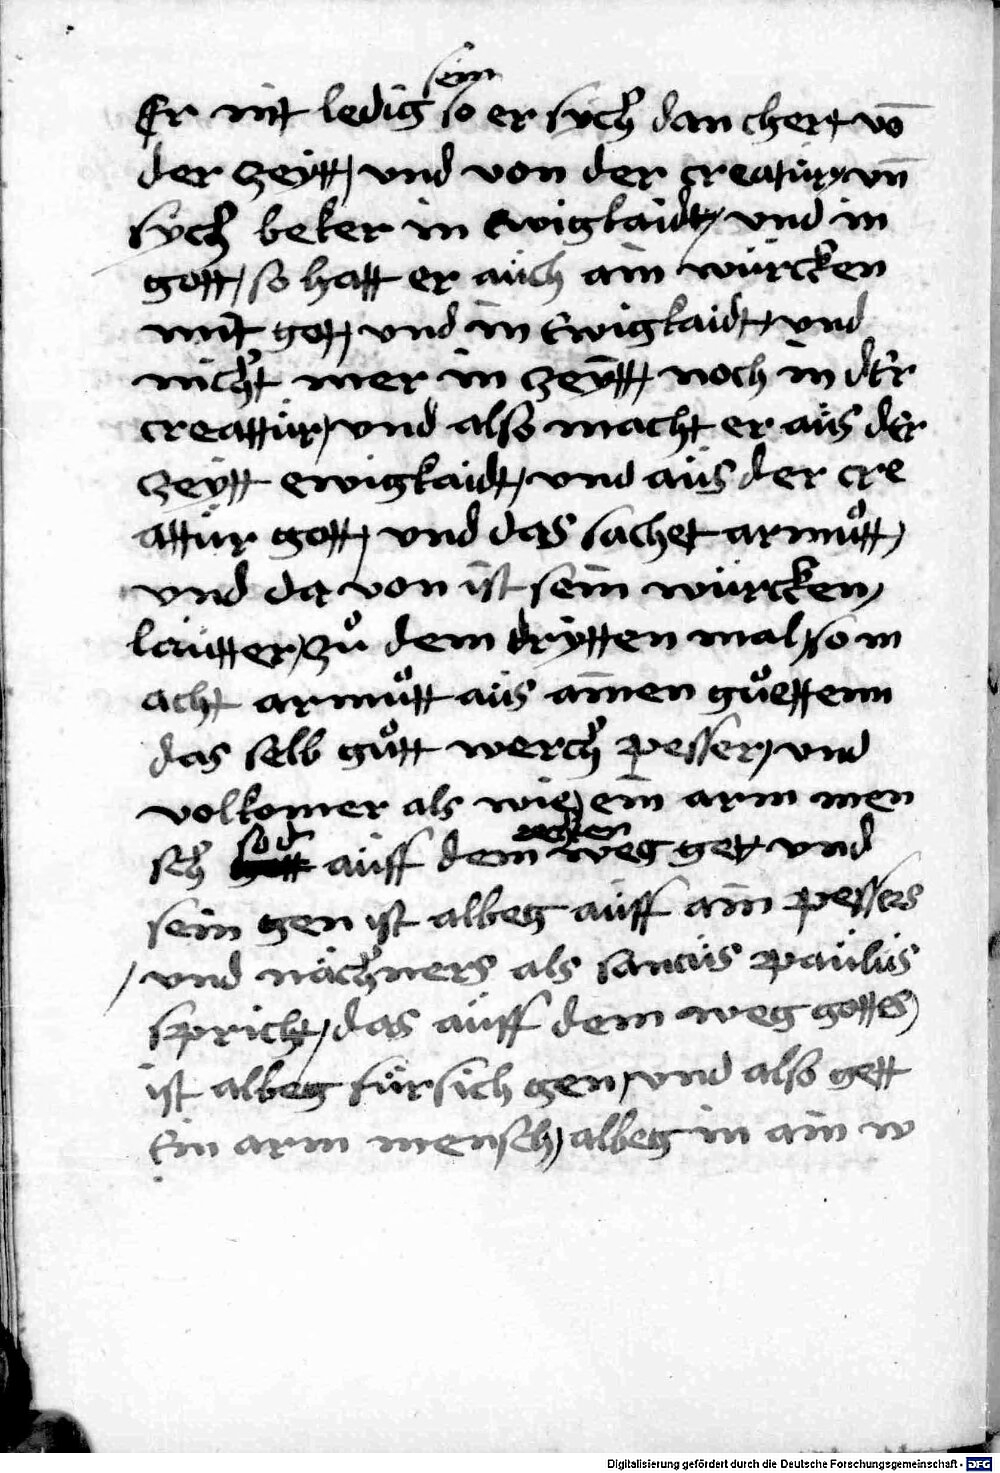 Er nit ledig sein so er sych dan chert vō
der zeÿtt / vnd von der creatur vn̄
sych beker in Ewigkaidt / vnd in
gott / so hatt er aüch ain würcken
mit gott / vnd in Ewigkaidt / vnd
nicht mer in zeÿtt / noch in der
creattür / vnd also macht er aüs der
zeÿtt ewigkaidt / vnd aüs der cre
attür gott / vnd das sachet armůtt /
vnd da von ist sein würcken /
laütter / zů dem drÿtten mal / so m
acht armůtt aüs ainen gůettenn
das selb gůtt werch pesser / vnd
volkomer als wie / ein arm men
sch so d aüff dem rechten weg get vnd
sein gen ist albeg aüff ain pessers
/ vnd nächners als sanctüs paülüs
spricht / das aüff dem weg gottes /
ist albeg für sich gen / vnd also gett
Ein arm mensch / albeg in ain w
Digitalisierung gefördert durch die Deutsche Forschungsgemeinschaft - DFG